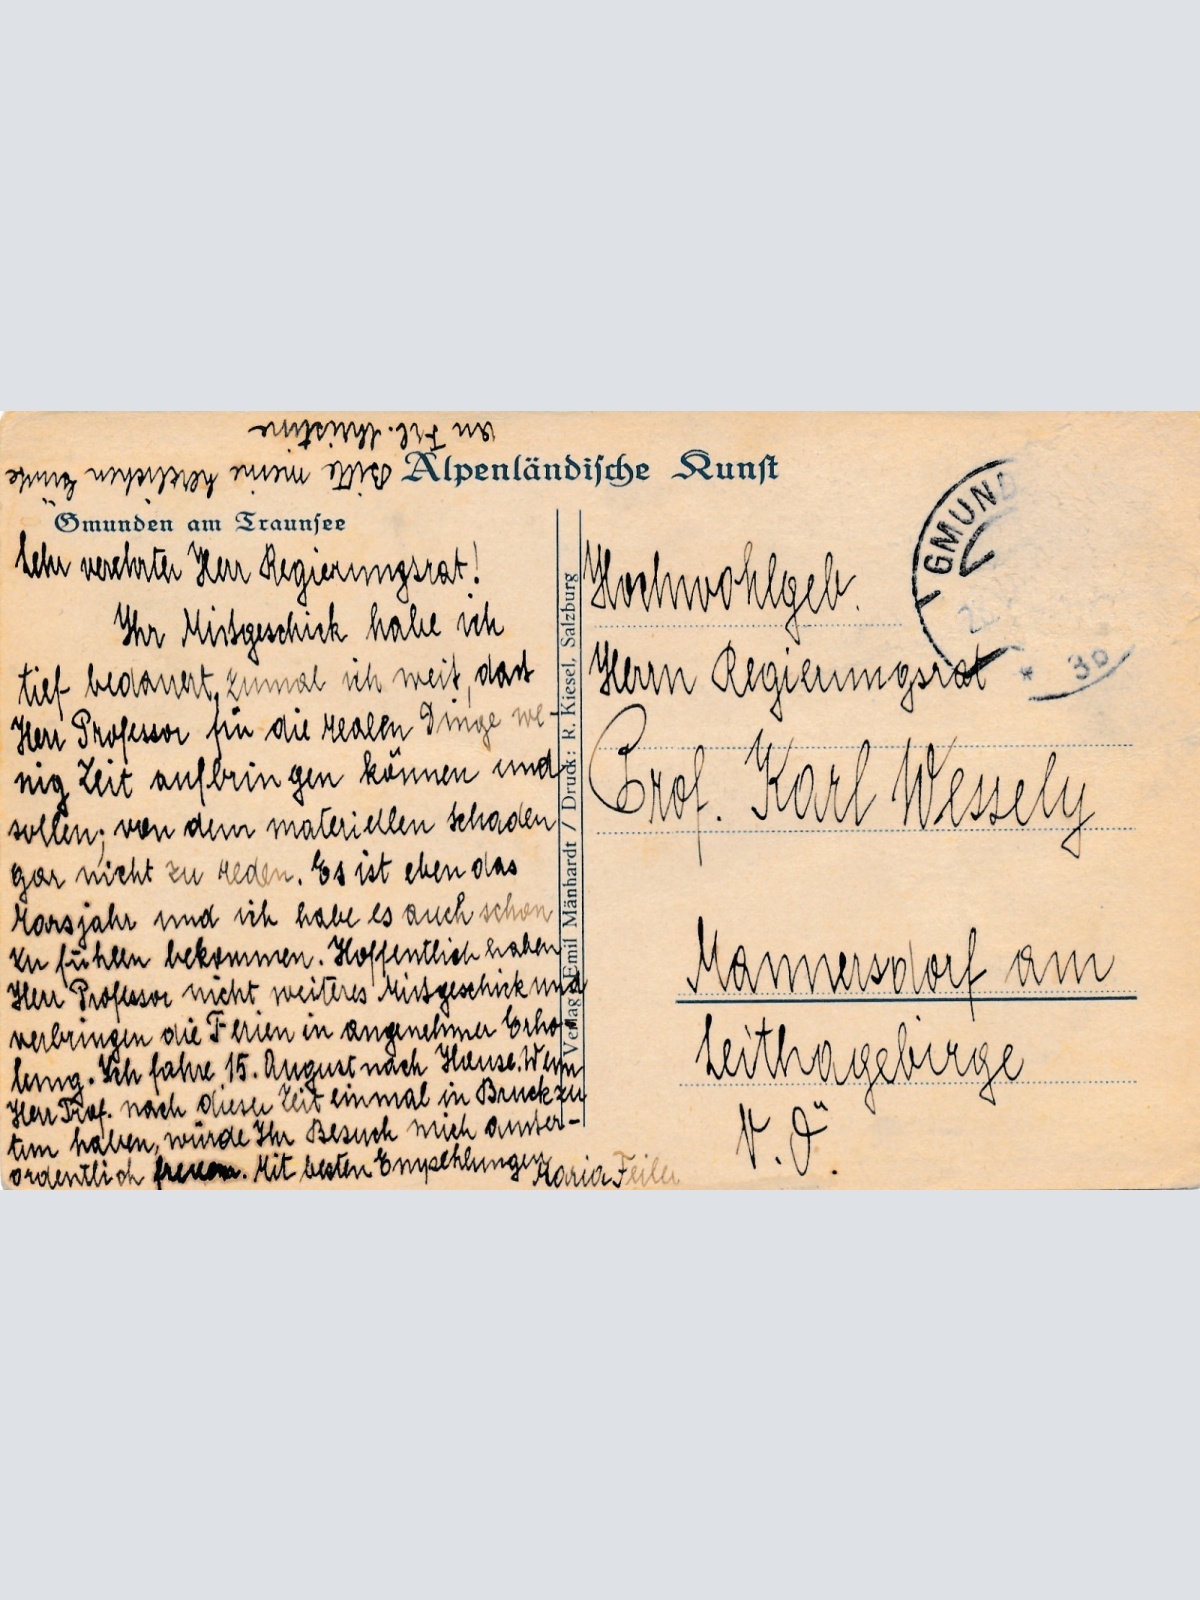 an Frl. Christine
Bitte meine herzlichen Grüße
Alpenländische Kunst
Gmunden am Traunsee
Sehr verehrter Herr Regierungsrat!
Ihr Missgeschick habe ich
tief bedauert, zumal ich weiß, dass
Herr Professor für die realen Dinge we-
nig Zeit aufbringen können und
sollen; von dem materiellen Schaden
gar nicht zu reden. Es ist eben das
Marsjahr und ich habe es auch schon
zu fühlen bekommen. Hoffentlich haben
Herr Professor nicht weiteres Missgeschick und
verbringen die Ferien in angenehmer Erho-
lung. Ich fahre 15. August nach Hause. Wenn
Herr Prof. nach dieser Zeit einmal in Bruck zu
tun haben, würde Ihr Besuch mich außer-
ordentlich freuen. Mit besten Empfehlungen
Maria Feiler
Verlag Emil Mänhardt / Druck: R. Kiesel, Salzburg
GMUND
* 30
Hochwohlgeb.
Herrn Regierungsrat
Prof. Karl Wessely
Mannersdorf am
Leithagebirge
N.Ö.